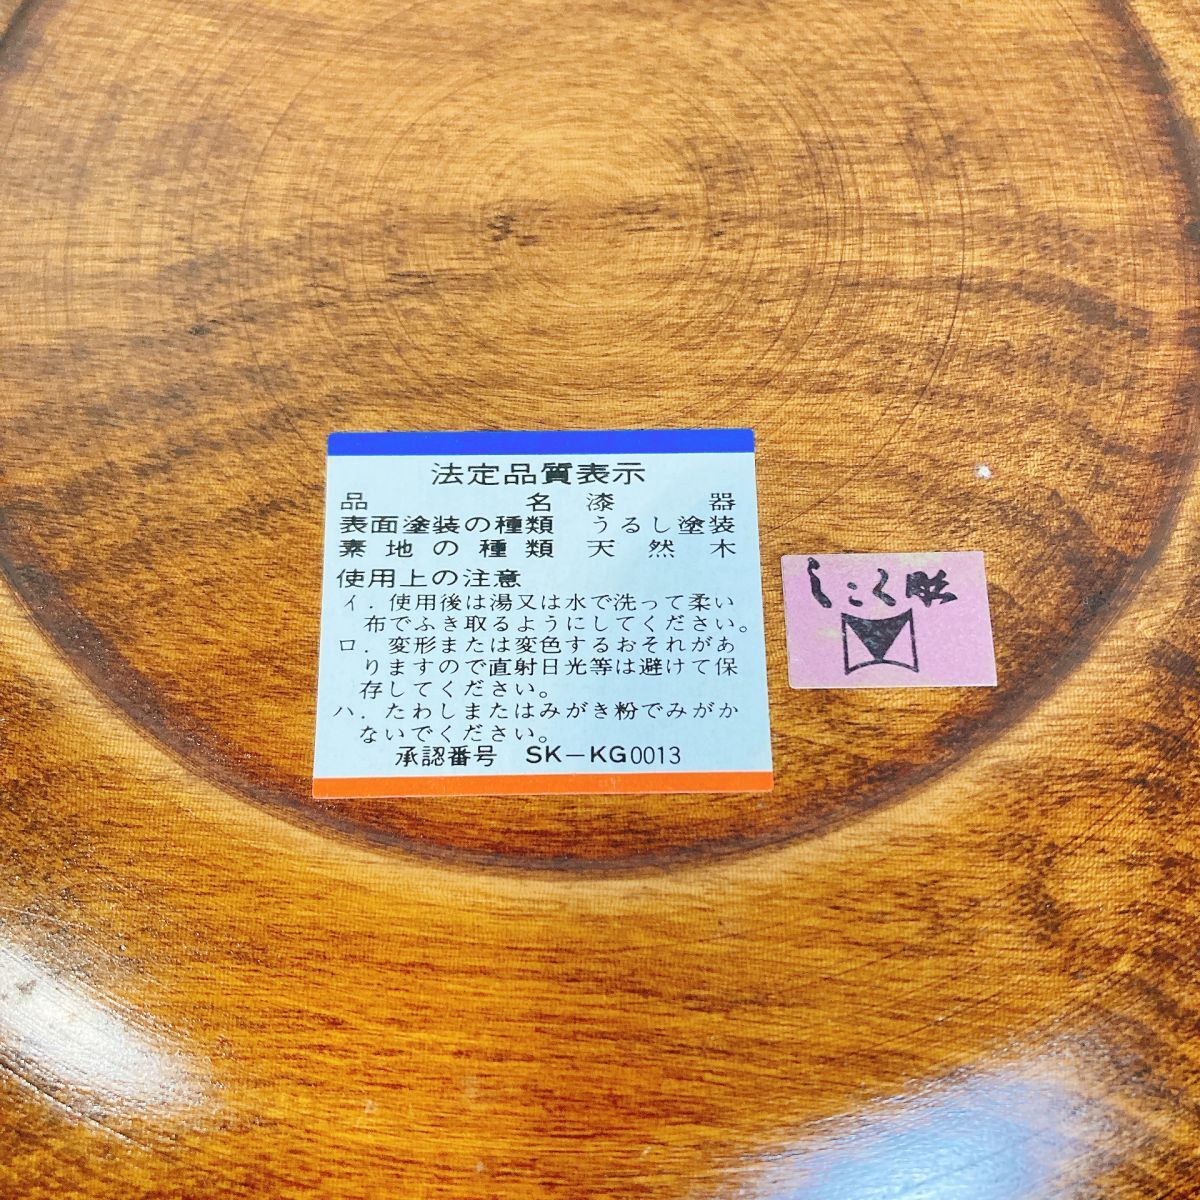 法定品質表示
品名 漆器
表面塗装の種類 うるし塗装
素地の種類 天然木
使用上の注意
イ．使用後は湯又は水で洗って柔い
布でふき取るようにしてください。
ロ．変形または変色するおそれがあ
りますので直射日光等は避けて保
存してください。
ハ．たわしまたはみがき粉でみがか
ないでください。
承認番号 SK－KG0013
しこく彫